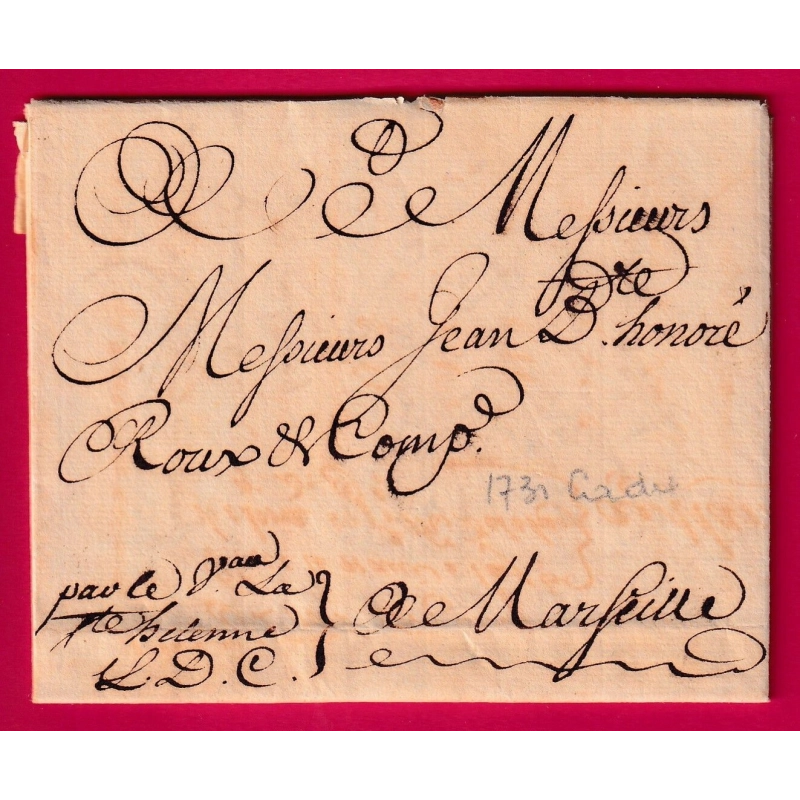 A Messieurs
Messieurs Jean Bte. honoré
Roux & Compe.
1731 Cadix
par le Vau La
L. D. C.
A Marseille